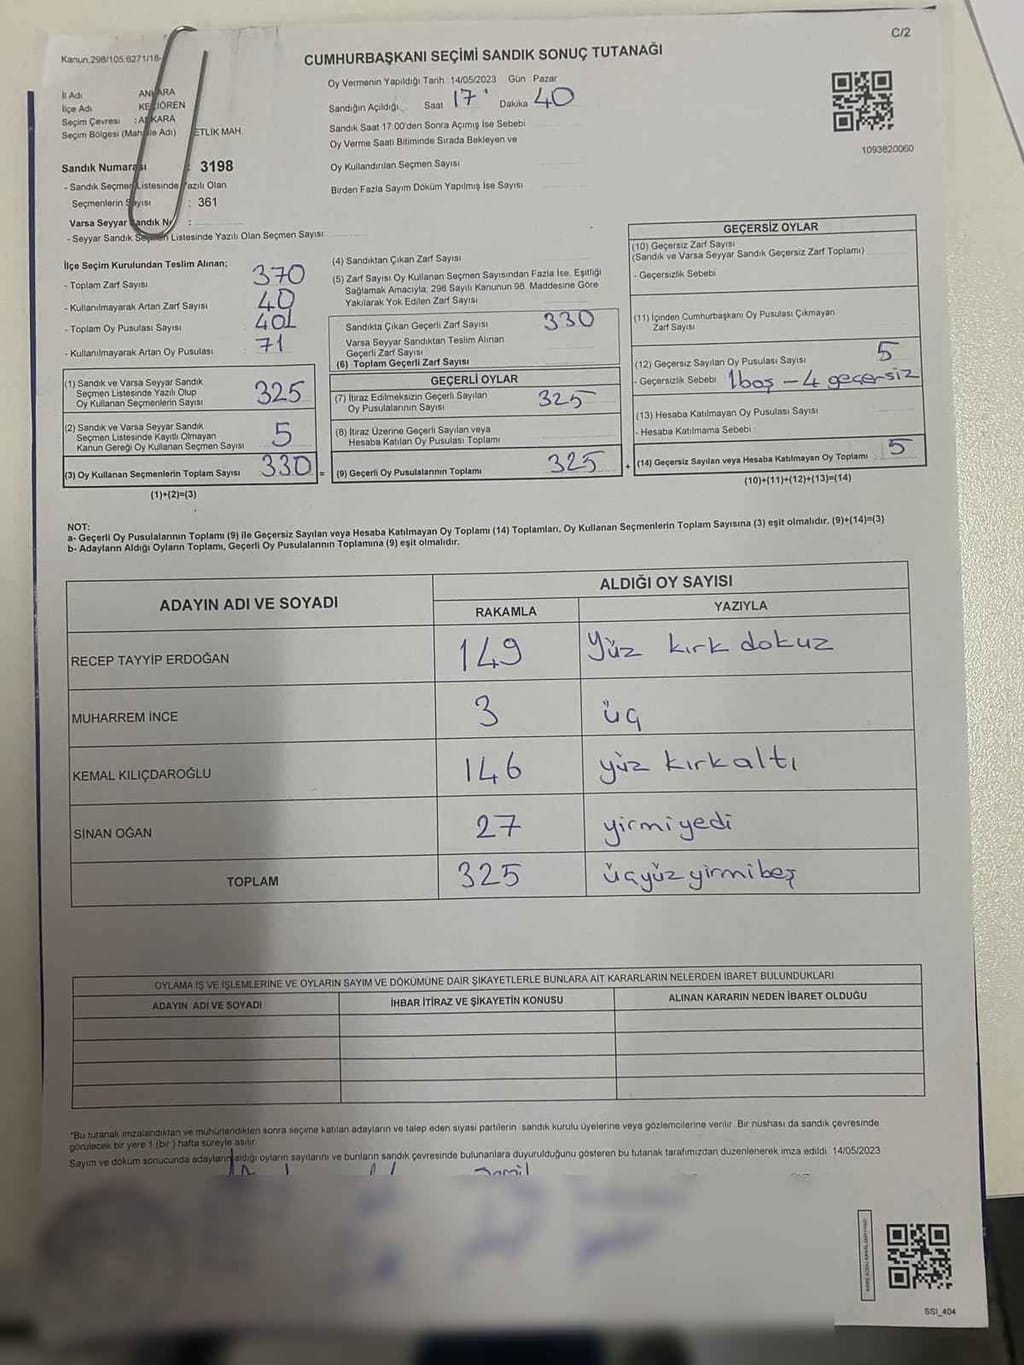 C/2
Kanun 298/105,6271/18-
CUMHURBAŞKANI SEÇİMİ SANDIK SONUÇ TUTANAĞI
İl Adı ANKARA
İlçe Adı KEÇİÖREN
Seçim Çevresi : ANKARA
Seçim Bölgesi (Mahalle Adı) ETLİK MAH.
Oy Vermenin Yapıldığı Tarih 14/05/2023 Gün Pazar
Sandığın Açıldığı Saat 17 Dakika 40
Sandık Saat 17:00'den Sonra Açımış İse Sebebi
Oy Verme Saati Bitiminde Sırada Bekleyen ve
Oy Kullandırılan Seçmen Sayısı
Birden Fazla Sayım Döküm Yapılmış İse Sayısı
1093820060
Sandık Numarası : 3198
- Sandık Seçmen Listesinde Yazılı Olan
Seçmenlerin Sayısı : 361
Varsa Seyyar Sandık No :
- Seyyar Sandık Seçmen Listesinde Yazılı Olan Seçmen Sayısı
İlçe Seçim Kurulundan Teslim Alınan;
- Toplam Zarf Sayısı 370
- Kullanılmayarak Artan Zarf Sayısı 40
- Toplam Oy Pusulası Sayısı 401
- Kullanılmayarak Artan Oy Pusulası 71
(1) Sandık ve Varsa Seyyar Sandık
Seçmen Listesinde Yazılı Olup
Oy Kullanan Seçmenlerin Sayısı 325
(2) Sandık ve Varsa Seyyar Sandık
Seçmen Listesinde Kayıtlı Olmayan
Kanun Gereği Oy Kullanan Seçmen Sayısı 5
(3) Oy Kullanan Seçmenlerin Toplam Sayısı 330 =
(1)+(2)=(3)
(4) Sandıktan Çıkan Zarf Sayısı
(5) Zarf Sayısı Oy Kullanan Seçmen Sayısından Fazla İse, Eşitliği
Sağlamak Amacıyla; 298 Sayılı Kanunun 98. Maddesine Göre
Yakılarak Yok Edilen Zarf Sayısı
Sandıkta Çıkan Geçerli Zarf Sayısı 330
Varsa Seyyar Sandıktan Teslim Alınan
Geçerli Zarf Sayısı
(6) Toplam Geçerli Zarf Sayısı
GEÇERLİ OYLAR
(7) İtiraz Edilmeksizin Geçerli Sayılan
Oy Pusulalarının Sayısı 325
(8) İtiraz Üzerine Geçerli Sayılan veya
Hesaba Katılan Oy Pusulası Toplamı
(9) Geçerli Oy Pusulalarının Toplamı 325 +
GEÇERSİZ OYLAR
(10) Geçersiz Zarf Sayısı
(Sandık ve Varsa Seyyar Sandık Geçersiz Zarf Toplamı)
- Geçersizlik Sebebi
(11) İçinden Cumhurbaşkanı Oy Pusulası Çıkmayan
Zarf Sayısı
(12) Geçersiz Sayılan Oy Pusulası Sayısı 5
- Geçersizlik Sebebi 1boş - 4 geçersiz
(13) Hesaba Katılmayan Oy Pusulası Sayısı
- Hesaba Katılmama Sebebi
(14) Geçersiz Sayılan veya Hesaba Katılmayan Oy Toplamı 5
(10)+(11)+(12)+(13)=(14)
NOT:
a- Geçerli Oy Pusulalarının Toplamı (9) ile Geçersiz Sayılan veya Hesaba Katılmayan Oy Toplamı (14) Toplamları, Oy Kullanan Seçmenlerin Toplam Sayısına (3) eşit olmalıdır. (9)+(14)=(3)
b- Adayların Aldığı Oyların Toplamı, Geçerli Oy Pusulalarının Toplamına (9) eşit olmalıdır.
ADAYIN ADI VE SOYADI
ALDIĞI OY SAYISI
RAKAMLA YAZIYLA
RECEP TAYYİP ERDOĞAN 149 Yüz kırk dokuz
MUHARREM İNCE 3 üç
KEMAL KILIÇDAROĞLU 146 yüz kırkaltı
SİNAN OĞAN 27 yirmiyedi
TOPLAM 325 üçyüzyirmibeş
OYLAMA İŞ VE İŞLEMLERİNE VE OYLARIN SAYIM VE DÖKÜMÜNE DAİR ŞİKAYETLERLE BUNLARA AİT KARARLARIN NELERDEN İBARET BULUNDUKLARI
ADAYIN ADI VE SOYADI İHBAR İTİRAZ VE ŞİKAYETİN KONUSU ALINAN KARARIN NEDEN İBARET OLDUĞU
*Bu tutanak imzalandıktan ve mühürlendikten sonra seçime katılan adayların ve talep eden siyasi partilerin sandık kurulu üyelerine veya gözlemcilerine verilir. Bir nüshası da sandık çevresinde
görülecek bir yere 1 (bir) hafta süreyle asılır.
Sayım ve döküm sonucunda adayların aldığı oyların sayılarını ve bunların sandık çevresinde bulunanlara duyurulduğunu gösteren bu tutanak tarafımızdan düzenlenerek imza edildi. 14/05/2023
SSI_404